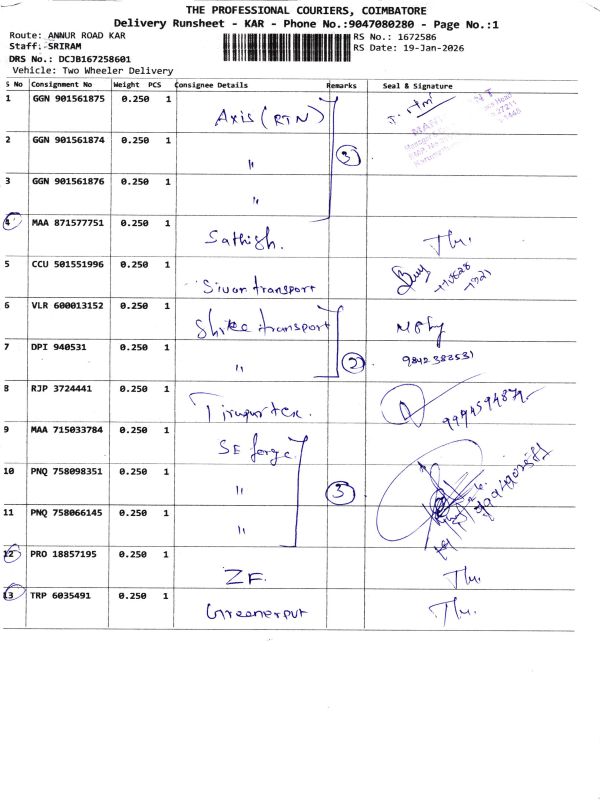 THE PROFESSIONAL COURIERS, COIMBATORE
Delivery Runsheet - KAR - Phone No.:9047080280 - Page No.:1
Route: ANNUR ROAD KAR
RS No.: 1672586
Staff: SRIRAM
RS Date: 19-Jan-2026
DRS No.: DCJB167258601
Vehicle: Two Wheeler Delivery
S No Consignment No Weight PCS Consignee Details Remarks Seal & Signature
1 GGN 901561875 0.250 1 Axis (RTN)
2 GGN 901561874 0.250 1 " 3
3 GGN 901561876 0.250 1 "
4 MAA 871577751 0.250 1 Sathish.
5 CCU 501551996 0.250 1 Sivan transport
6 VLR 600013152 0.250 1 Shree transport
7 DPI 940531 0.250 1 " 2 9842382531
8 RJP 3724441 0.250 1
9 MAA 715033784 0.250 1 SE forge
10 PNQ 758098351 0.250 1 " 3
11 PNQ 758066145 0.250 1 "
12 PRO 18857195 0.250 1 ZF.
13 TRP 6035491 0.250 1